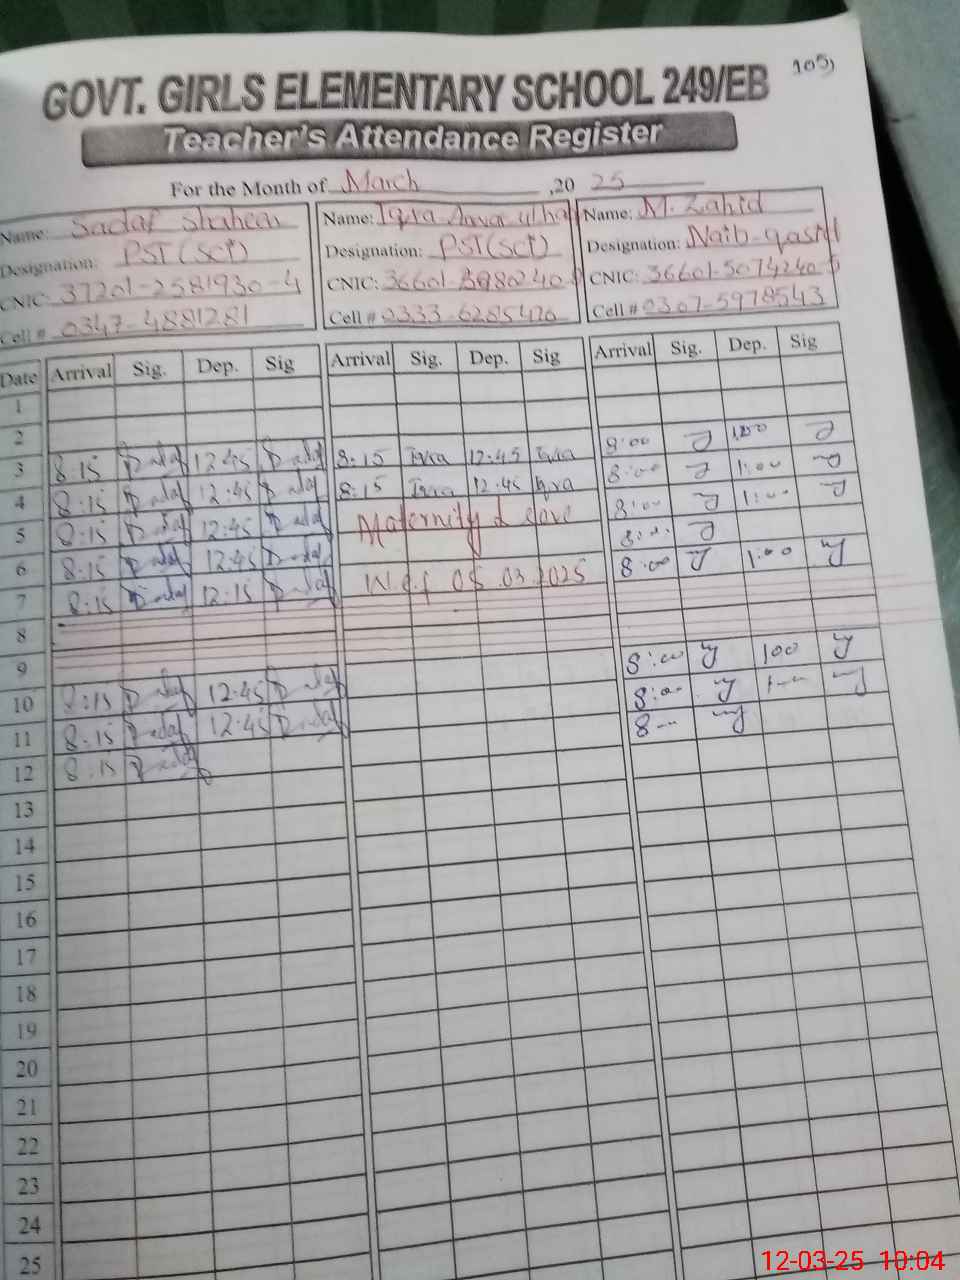 105
GOVT. GIRLS ELEMENTARY SCHOOL 249/EB
Teacher's Attendance Register
For the Month of March ,20 25
Name: Sadaf Shaheen Name: Iqra Anwar ulhaq Name: M. Zahid
Designation: PST(Sci) Designation: PST(Sci) Designation: Naib-qasid
CNIC: 37201-2581930-4 CNIC: CNIC: 36601-5074240
Cell # 0347-4881281 Cell # 0333-6285420 Cell # 0307-5978543
Date Arrival Sig. Dep. Sig Arrival Sig. Dep. Sig Arrival Sig. Dep. Sig
1
2
3 8:15 Sadaf 12:45 Sadaf 8:15 Iqra 12:45 Iqra 8:00 1:00
4 8:15 Sadaf 12:45 Sadaf 8:15 Iqra 12:45 Iqra 8:00 1:00
5 8:15 Sadaf 12:45 Sadaf Maternity Leave 8:00 1:00
6 8:15 Sadaf 12:45 Sadaf 8:00
7 8:15 Sadaf 12:15 Sadaf W.e.f 05.03.2025 8:00 1:00
8
9
10 8:15 Sadaf 12:45 Sadaf 8:00 100
11 8:15 Sadaf 12:45 Sadaf 8:00
12 8:15 Sadaf
13
14
15
16
17
18
19
20
21
22
23
24
25
12-03-25 10:04